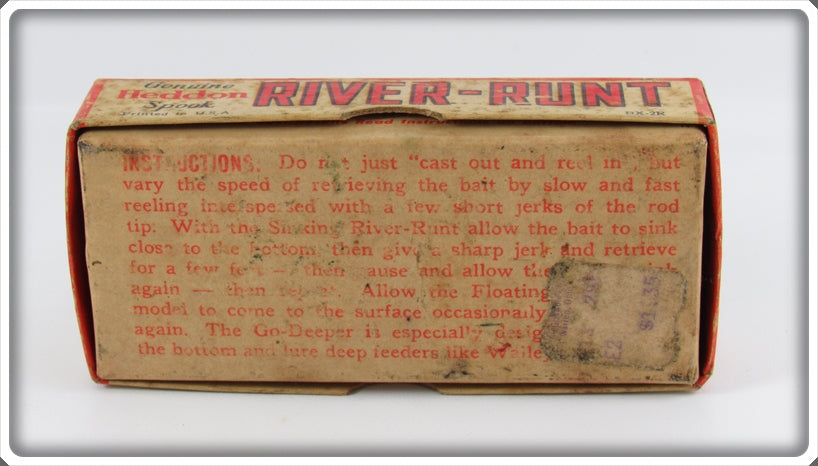 Genuine
Heddon
Spook
RIVER-RUNT
Printed in U.S.A.
BX-2R
Read
INSTRUCTIONS. Do not just "cast out and reel in", but
vary the speed of retrieving the bait by slow and fast
reeling interspersed with a few short jerks of the rod
tip. With the Sinking River-Runt allow the bait to sink
close to the bottom, then give a sharp jerk and retrieve
for a few feet — then pause and allow the
again — then repeat. Allow the Floating
model to come to the surface occasionally
again. The Go-Deeper is especially
the bottom and lure deep feeders like
E2 $1.35